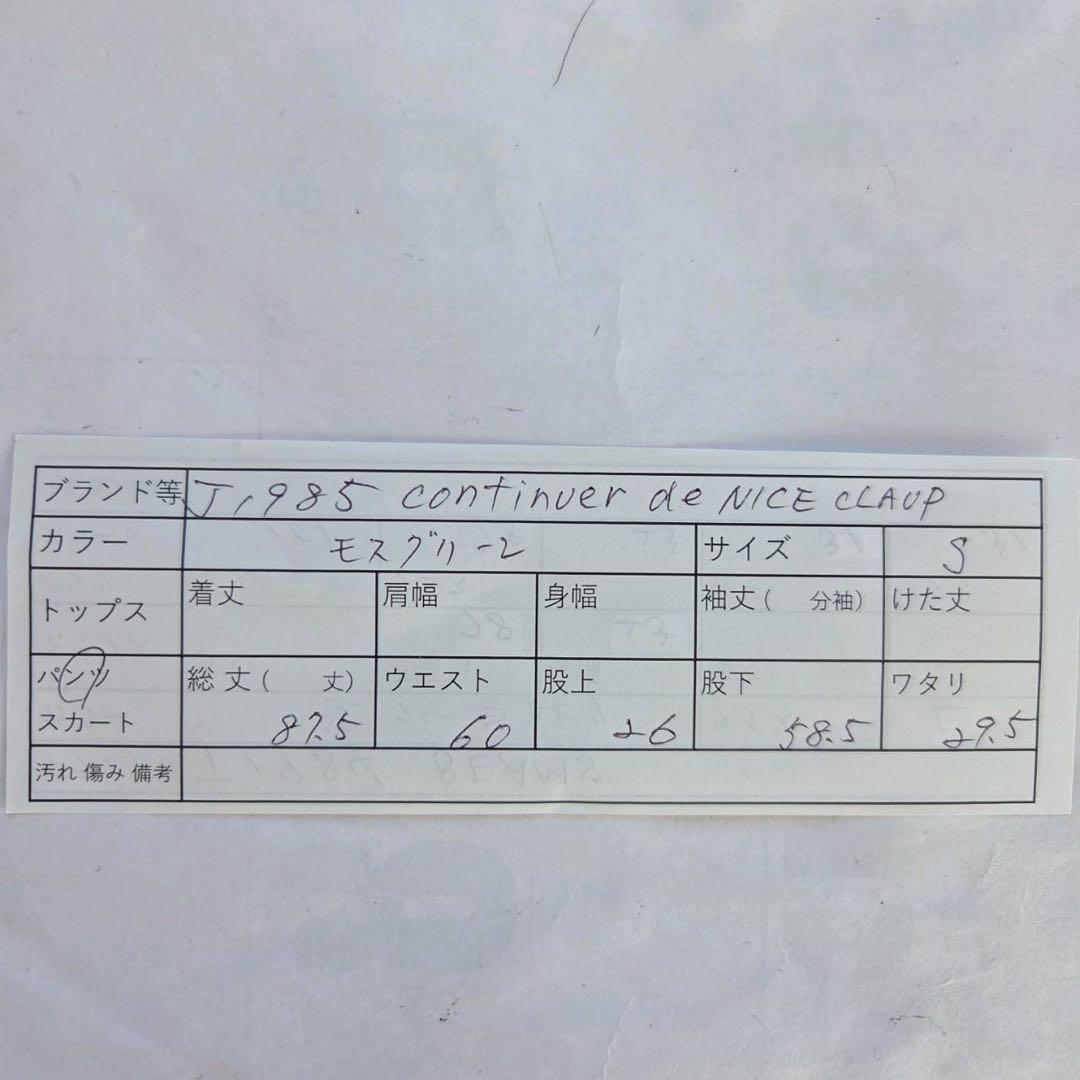 ブランド等 J1985 continuer de NICE CLAUP
カラー モスグリーン サイズ S
トップス 着丈 肩幅 身幅 袖丈( 分袖) けた丈
パンツ 総丈( 丈) ウエスト 股上 股下 ワタリ
スカート 87.5 60 26 58.5 29.5
汚れ 傷み 備考